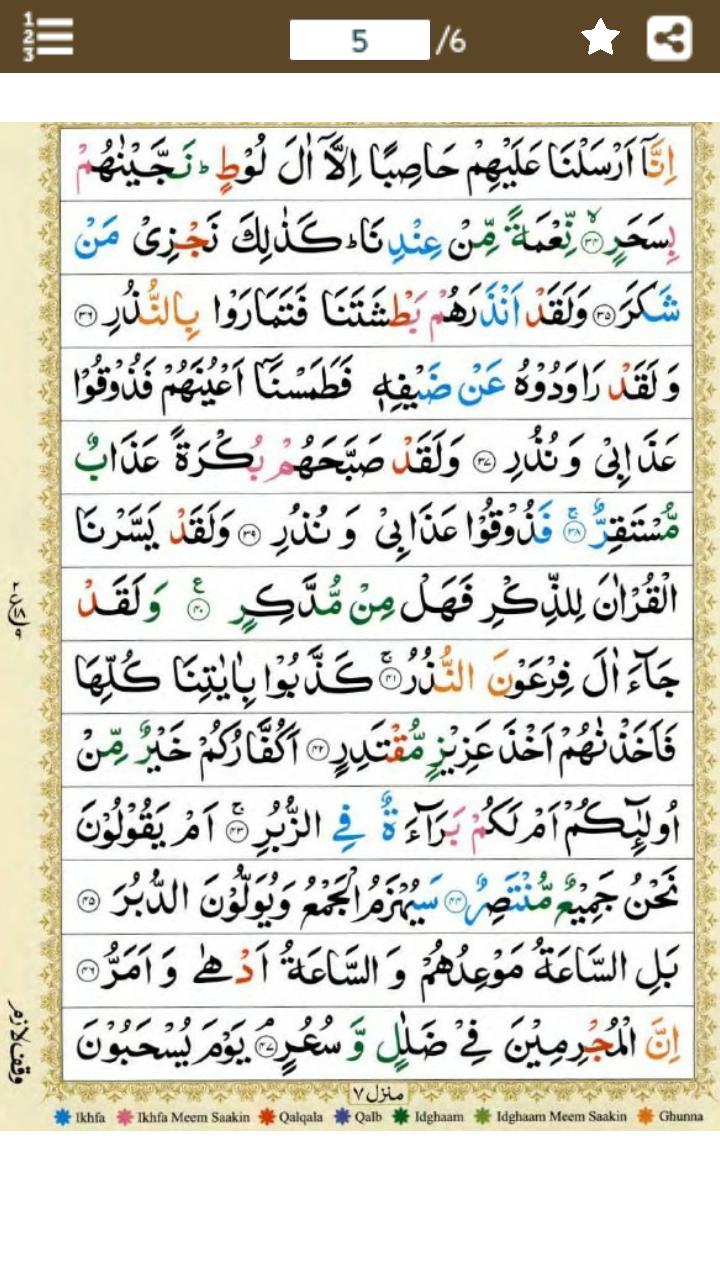 1
2
3
5 /6
اِنَّاۤ اَرْسَلْنَا عَلَيْهِمْ حَاصِبًا اِلَّاۤ اٰلَ لُوْطٍ ؕ نَجَّيْنٰهُمْ
بِسَحَرٍ ۙ﴿۳۴﴾ نِّعْمَةً مِّنْ عِنْدِنَا ؕ كَذٰلِكَ نَجْزِىْ مَنْ
شَكَرَ ﴿۳۵﴾ وَلَقَدْ اَنْذَرَهُمْ بَطْشَتَنَا فَتَمَارَوْا بِالنُّذُرِ ﴿۳۶﴾
وَلَقَدْ رَاوَدُوْهُ عَنْ ضَيْفِهٖ فَطَمَسْنَاۤ اَعْيُنَهُمْ فَذُوْقُوْا
عَذَابِىْ وَنُذُرِ ﴿۳۷﴾ وَلَقَدْ صَبَّحَهُمْ بُكْرَةً عَذَابٌ
مُّسْتَقِرٌّ ۚ﴿۳۸﴾ فَذُوْقُوْا عَذَابِىْ وَنُذُرِ ﴿۳۹﴾ وَلَقَدْ يَسَّرْنَا
الْقُرْاٰنَ لِلذِّكْرِ فَهَلْ مِنْ مُّدَّكِرٍ ﴿۴۰﴾ ع وَلَقَدْ
جَآءَ اٰلَ فِرْعَوْنَ النُّذُرُ ۚ﴿۴۱﴾ كَذَّبُوْا بِاٰيٰتِنَا كُلِّهَا
فَاَخَذْنٰهُمْ اَخْذَ عَزِيْزٍ مُّقْتَدِرٍ ﴿۴۲﴾ اَكُفَّارُكُمْ خَيْرٌ مِّنْ
اُولٰٓئِكُمْ اَمْ لَكُمْ بَرَآءَةٌ فِى الزُّبُرِ ۚ﴿۴۳﴾ اَمْ يَقُوْلُوْنَ
نَحْنُ جَمِيْعٌ مُّنْتَصِرٌ ﴿۴۴﴾ سَيُهْزَمُ الْجَمْعُ وَيُوَلُّوْنَ الدُّبُرَ ﴿۴۵﴾
بَلِ السَّاعَةُ مَوْعِدُهُمْ وَالسَّاعَةُ اَدْهٰى وَاَمَرُّ ﴿۴۶﴾
اِنَّ الْمُجْرِمِيْنَ فِىْ ضَلٰلٍ وَّسُعُرٍ ۘ﴿۴۷﴾ يَوْمَ يُسْحَبُوْنَ
وقف لازم
منزل ٧
Ikhfa Ikhfa Meem Saakin Qalqala Qalb Idghaam Idghaam Meem Saakin Ghunna